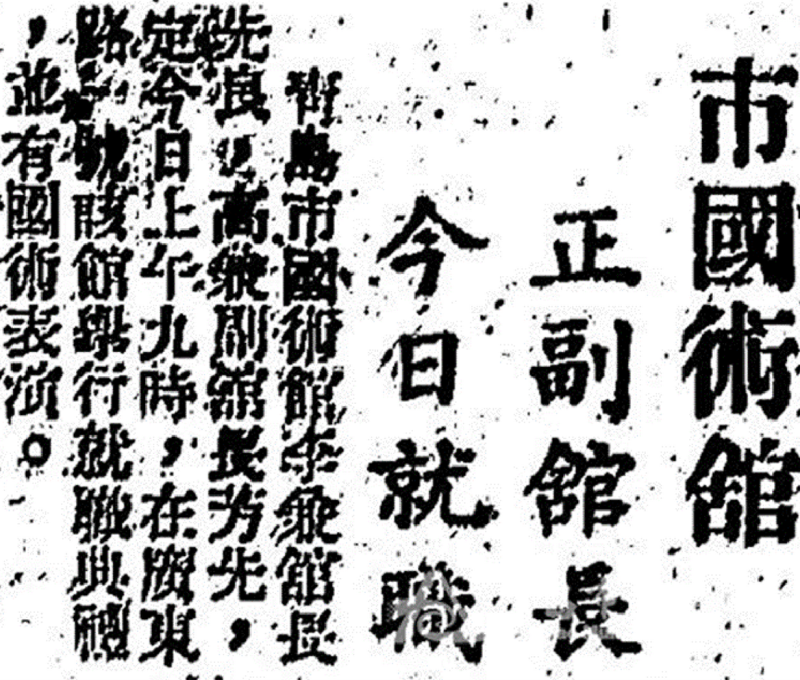 市國術舘
正副舘長
今日就職
青島市國術館李兼館長
先良，高兼副舘長芳先，
定今日上午九時，在廣東
路號該館舉行就職典禮
，並有國術表演。